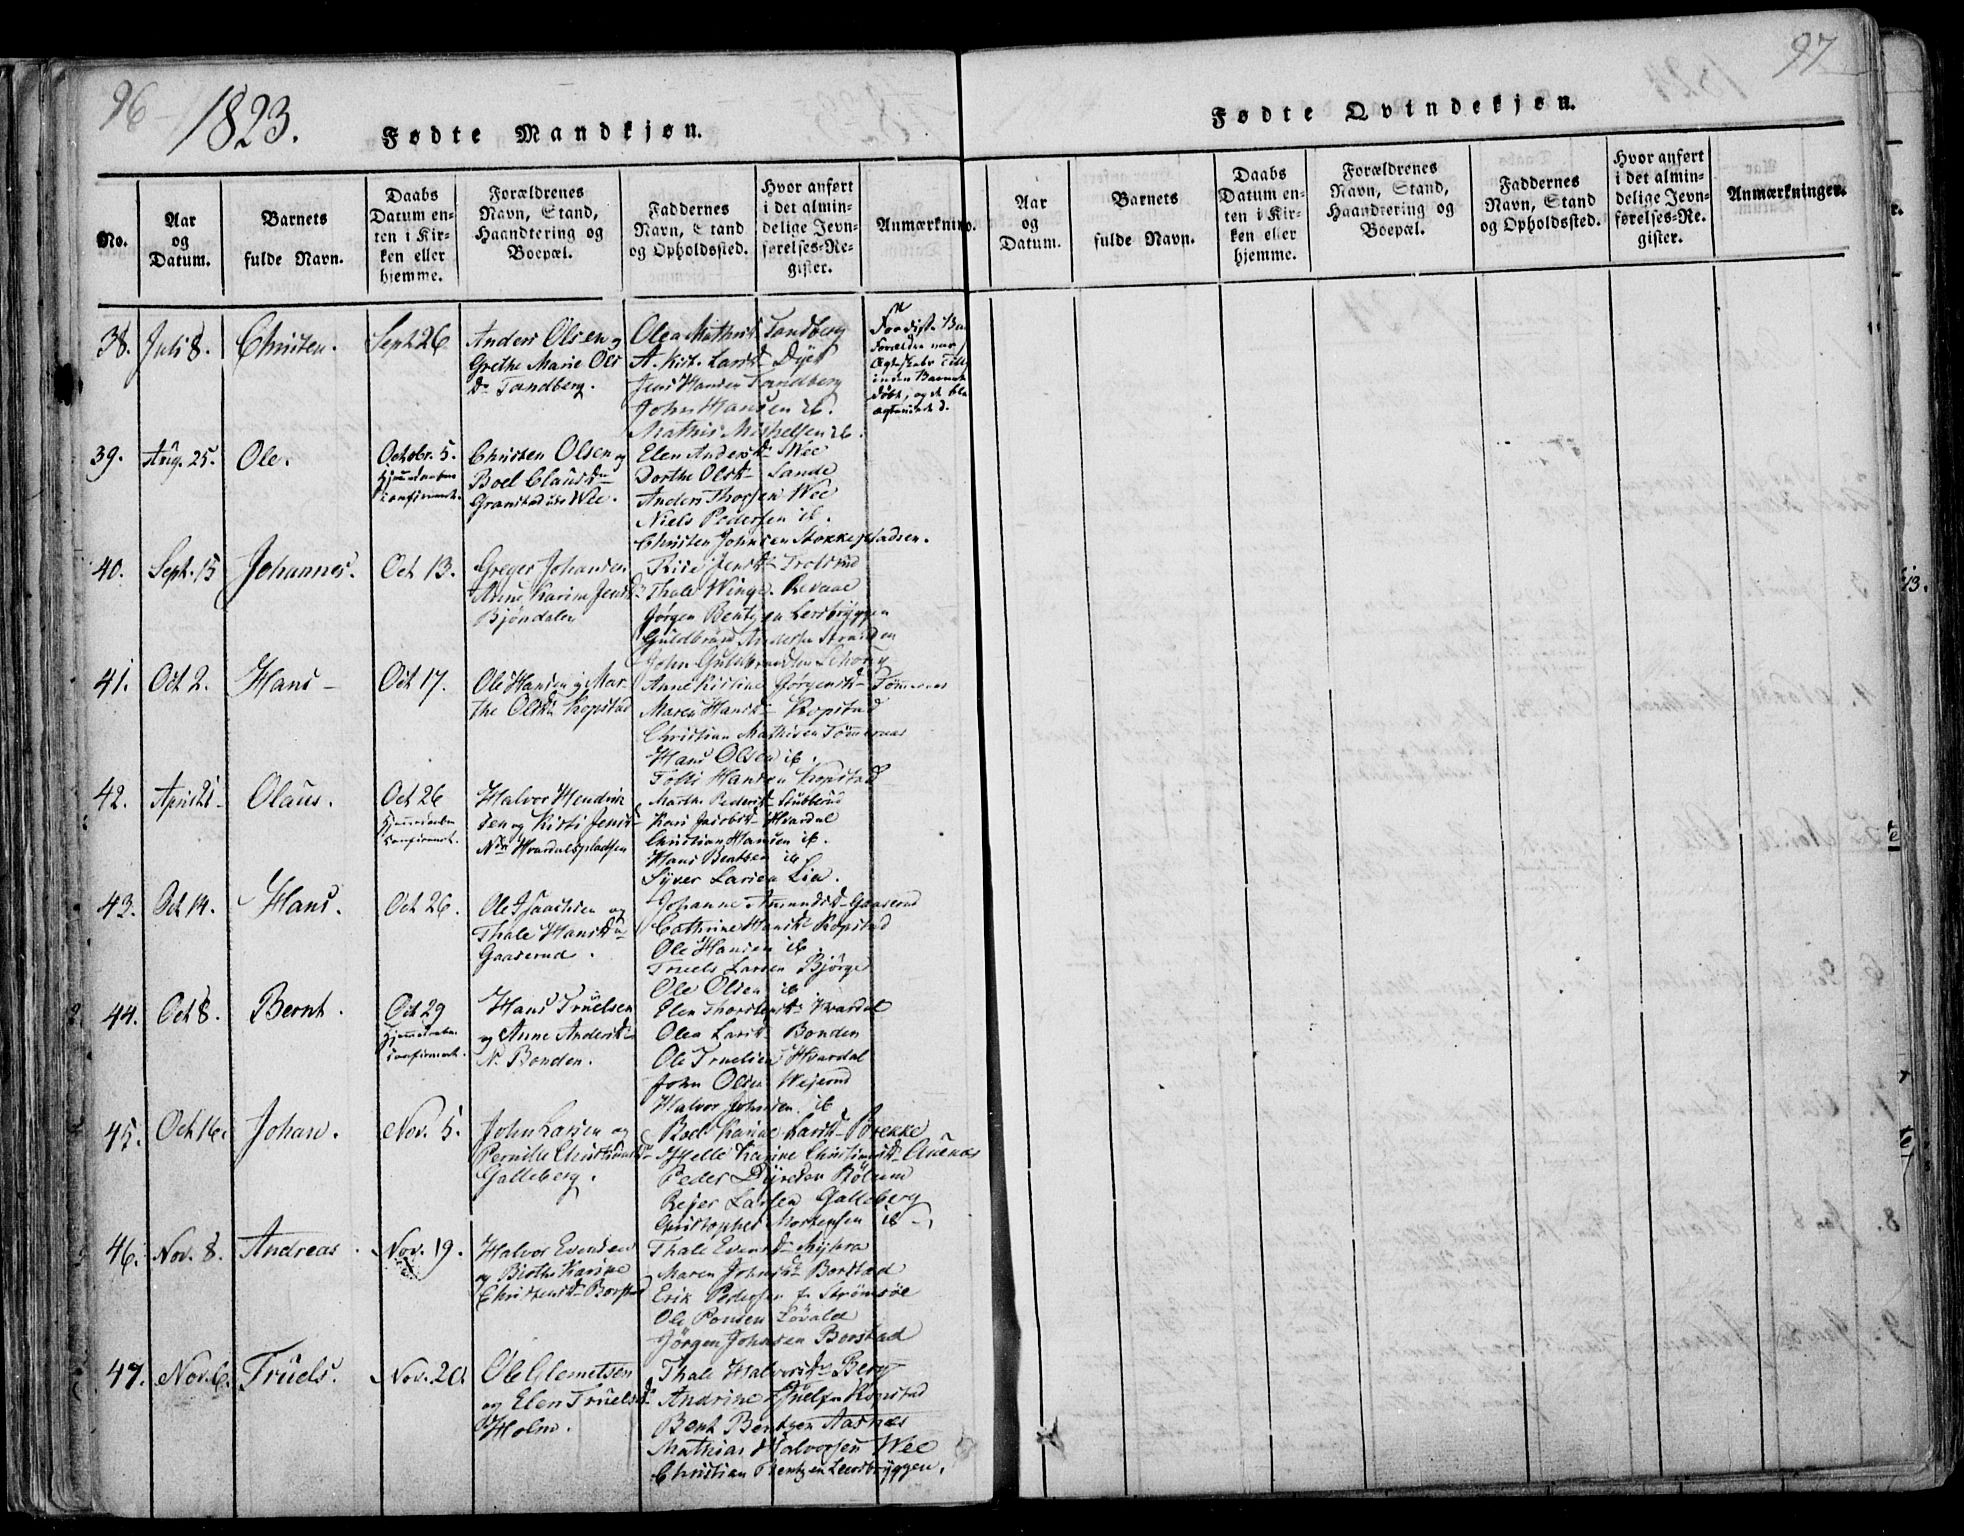 96
1823.
Fødte Mandkjøn.
No.
Aar
og
Datum.
Barnets
fulde Navn.
Daabs
Datum en-
ten i Kir-
ken eller
hjemme.
Forældrenes
Navn, Stand,
Haandtering og
Boepæl.
Faddernes
Navn, Stand
og Opholdssted.
Hvor anført
i det almin-
delige Jevn-
førelses-Re-
gister.
Anmærkning.
38. Juli 8. Christen. Sept. 26
Anders Olsen og
Grethe Marie Ols
Dr Tandberg.
Olea Mathisd. Tandberg
A. Kirt. Larsd. Dyet
Jens Hansen Tandberg
John Hansen ib.
Mathis
39. Aug. 25. Ole. Octobr. 5.
Hjemmedaaben
confirmert.
Christen Olsen og
Boel Clausdr
Granstad
Wee.
Elen Andersd. Wee
Dorthe Olsd. Sande
Anders Thorsen Wee
Niels Pedersen ib.
Christen Johnsen Stokkepladsen.
40. Sept. 15 Johannes. Oct 13.
Greger Johansen
Anne Karine Jensd.
Bjøndalen
Jensd.
Thale Winger Revaae
Jørgen Bentzen Lersbryggen
Guldbrand Andersen Stranden
John Guldbrandsen
41. Oct 2. Hans - Oct 17.
Ole Hansen og Mar-
the Olsdr Kopstad
Anne Kirstine Jørgensd. Tømmeraas
Maren Hansd. Kopstad
Christian Mathisen Tømmeraas
Hans Olsen ib.
Hansen Kopstad
42. April 21 Olaus. Oct 26
Hjemmedaaben
confirmert.
Halvor Hendrik
sen og Kirsti Jensd.
Hvardalspladsen
Marthe Pedersd. Stubberud
Kari Jacobsd. Hvardal
Christian Hansen ib.
Hans Bentsen ib
Syver Larsen Lia.
43. Oct 14. Hans. Oct 26.
Ole Isaachsen og
Thale Hansdr
Gaaserud.
Johanne Amundsd. Gaaserud
Cathrine Hansd. Kopstad
Ole Hansen ib.
Truels Larsen Bjørge
Ole Olsen ib
44. Oct 8. Bernt. Oct 29
Hjemmedaaben
confirmert.
Hans Truelsen
og Anne Andersd.
N. Bonden.
Elen Thorstensd. Hvardal
Olea Larsd. Bonden
Ole Truelsen Hvardal
John Olsen Wejerud
Halvor Johnsen ib
45. Oct 16. Johan. Nov. 5.
John Larsen og
Pernille Christiansdr
Galleberg.
Boel Karine Larsd. Brekke
Helle Karine Christiansd. Auenæs
Peder Dyresen Bølum
Rejer Larsen Galleberg
Christopher Mortensen ib
46. Nov. 8. Andreas. Nov. 19.
Halvor Evensen
og Birthe Karine
Christensd. Borstad
Thale Evensd. Myhra
Maren Johnsd. Borstad
Erik Pedersen fr Strømsøe
Ole Ponsen Løvald
Jørgen Johnsen Borstad
47. Nov. 6. Truels. Nov. 20.
Ole Clemetsen
og Elen Truelsd.
Holm.
Thale Halvorsdr Berg
Andrine Kopstad
Bent Bentzen Aasnes
Mathias Halvorsen Wee
Christian Bentzen Lersbryggen.
97
Fødte Qvindekjøn.
Aar
og
Datum.
Barnets
fulde Navn.
Daabs
Datum en-
ten i Kir-
ken eller
hjemme.
Forældrenes
Navn, Stand,
Haandtering og
Boepæl.
Faddernes
Navn, Stand
og Opholdssted.
Hvor anført
i det almin-
delige Jevn-
førelses-Re-
gister.
Anmærkninger.